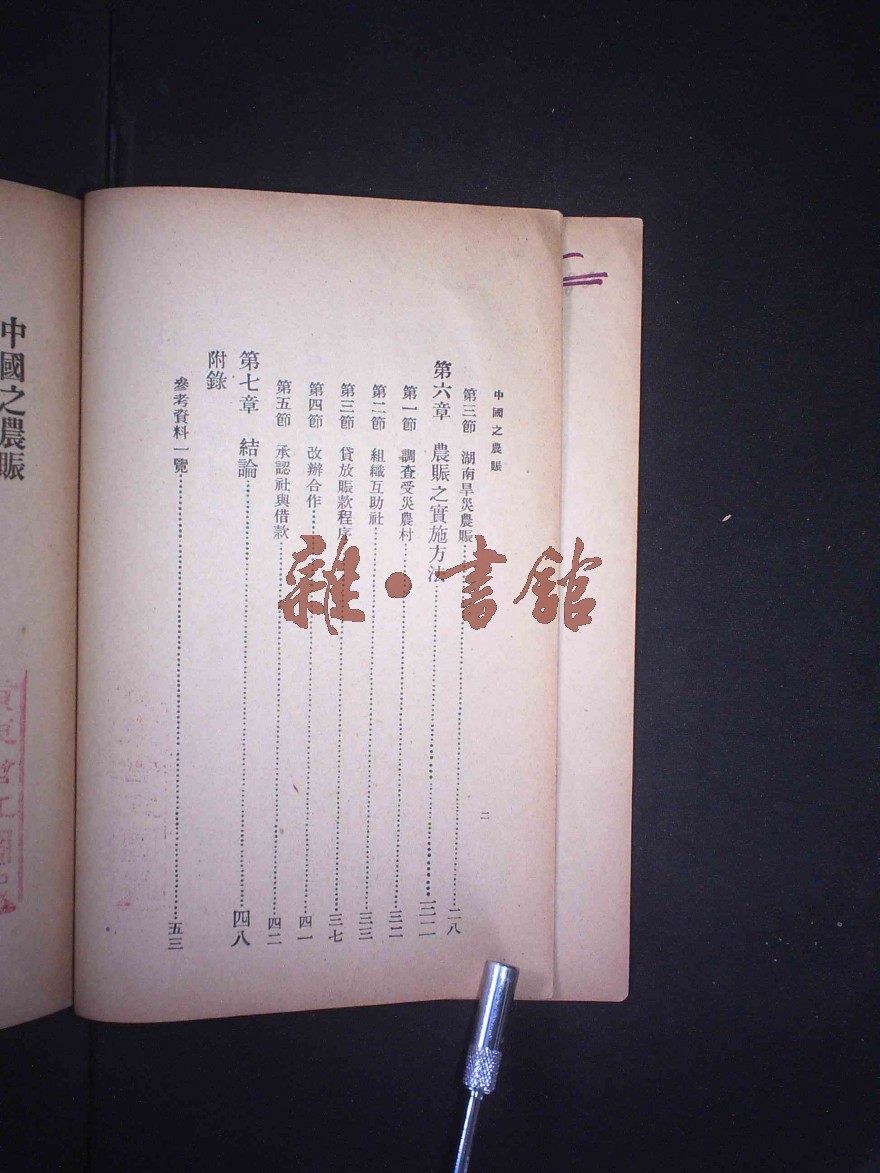 中國之農賑
二
第三節 湖南旱災農賑 二八
第六章 農賑之實施方法 三二
第一節 調查受災農村 三二
第二節 組織互助社 三三
第三節 貸放賑款程序 三七
第四節 改辦合作 四一
第五節 承認社與借款 四二
第七章 結論 四八
附錄
參考資料一覽 五三
中國之農賑
雜·書館